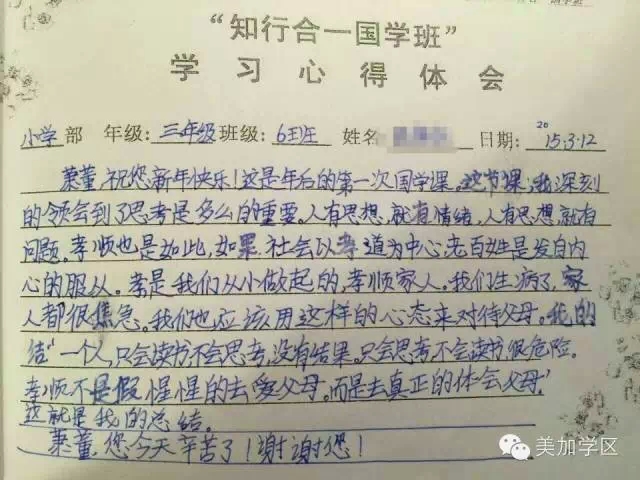 “知行合一国学班”
学习心得体会
小学部 年级:三年级班级:6班 姓名 日期:2015.3.12
萧董,祝您新年快乐!这是年后的第一次国学课。这节课,我深刻
的领会到了思考是多么的重要。人有思想,就有情绪,人有思想,就有
问题。孝顺也是如此,如果社会以孝道为中心,老百姓是发自内
心的服从。孝是我们从小做起的,孝顺家人。我们生病了,家
人都很焦急。我们也应该用这样的心态来对待父母。我的
结“一个人,只会读书不会思考,没有结果。只会思考不会读书,很危险。
孝顺不是假惺惺的去爱父母。而是去真正的体会父母。”
这就是我的总结。
萧董,您今天辛苦了!谢谢您!
美加学区